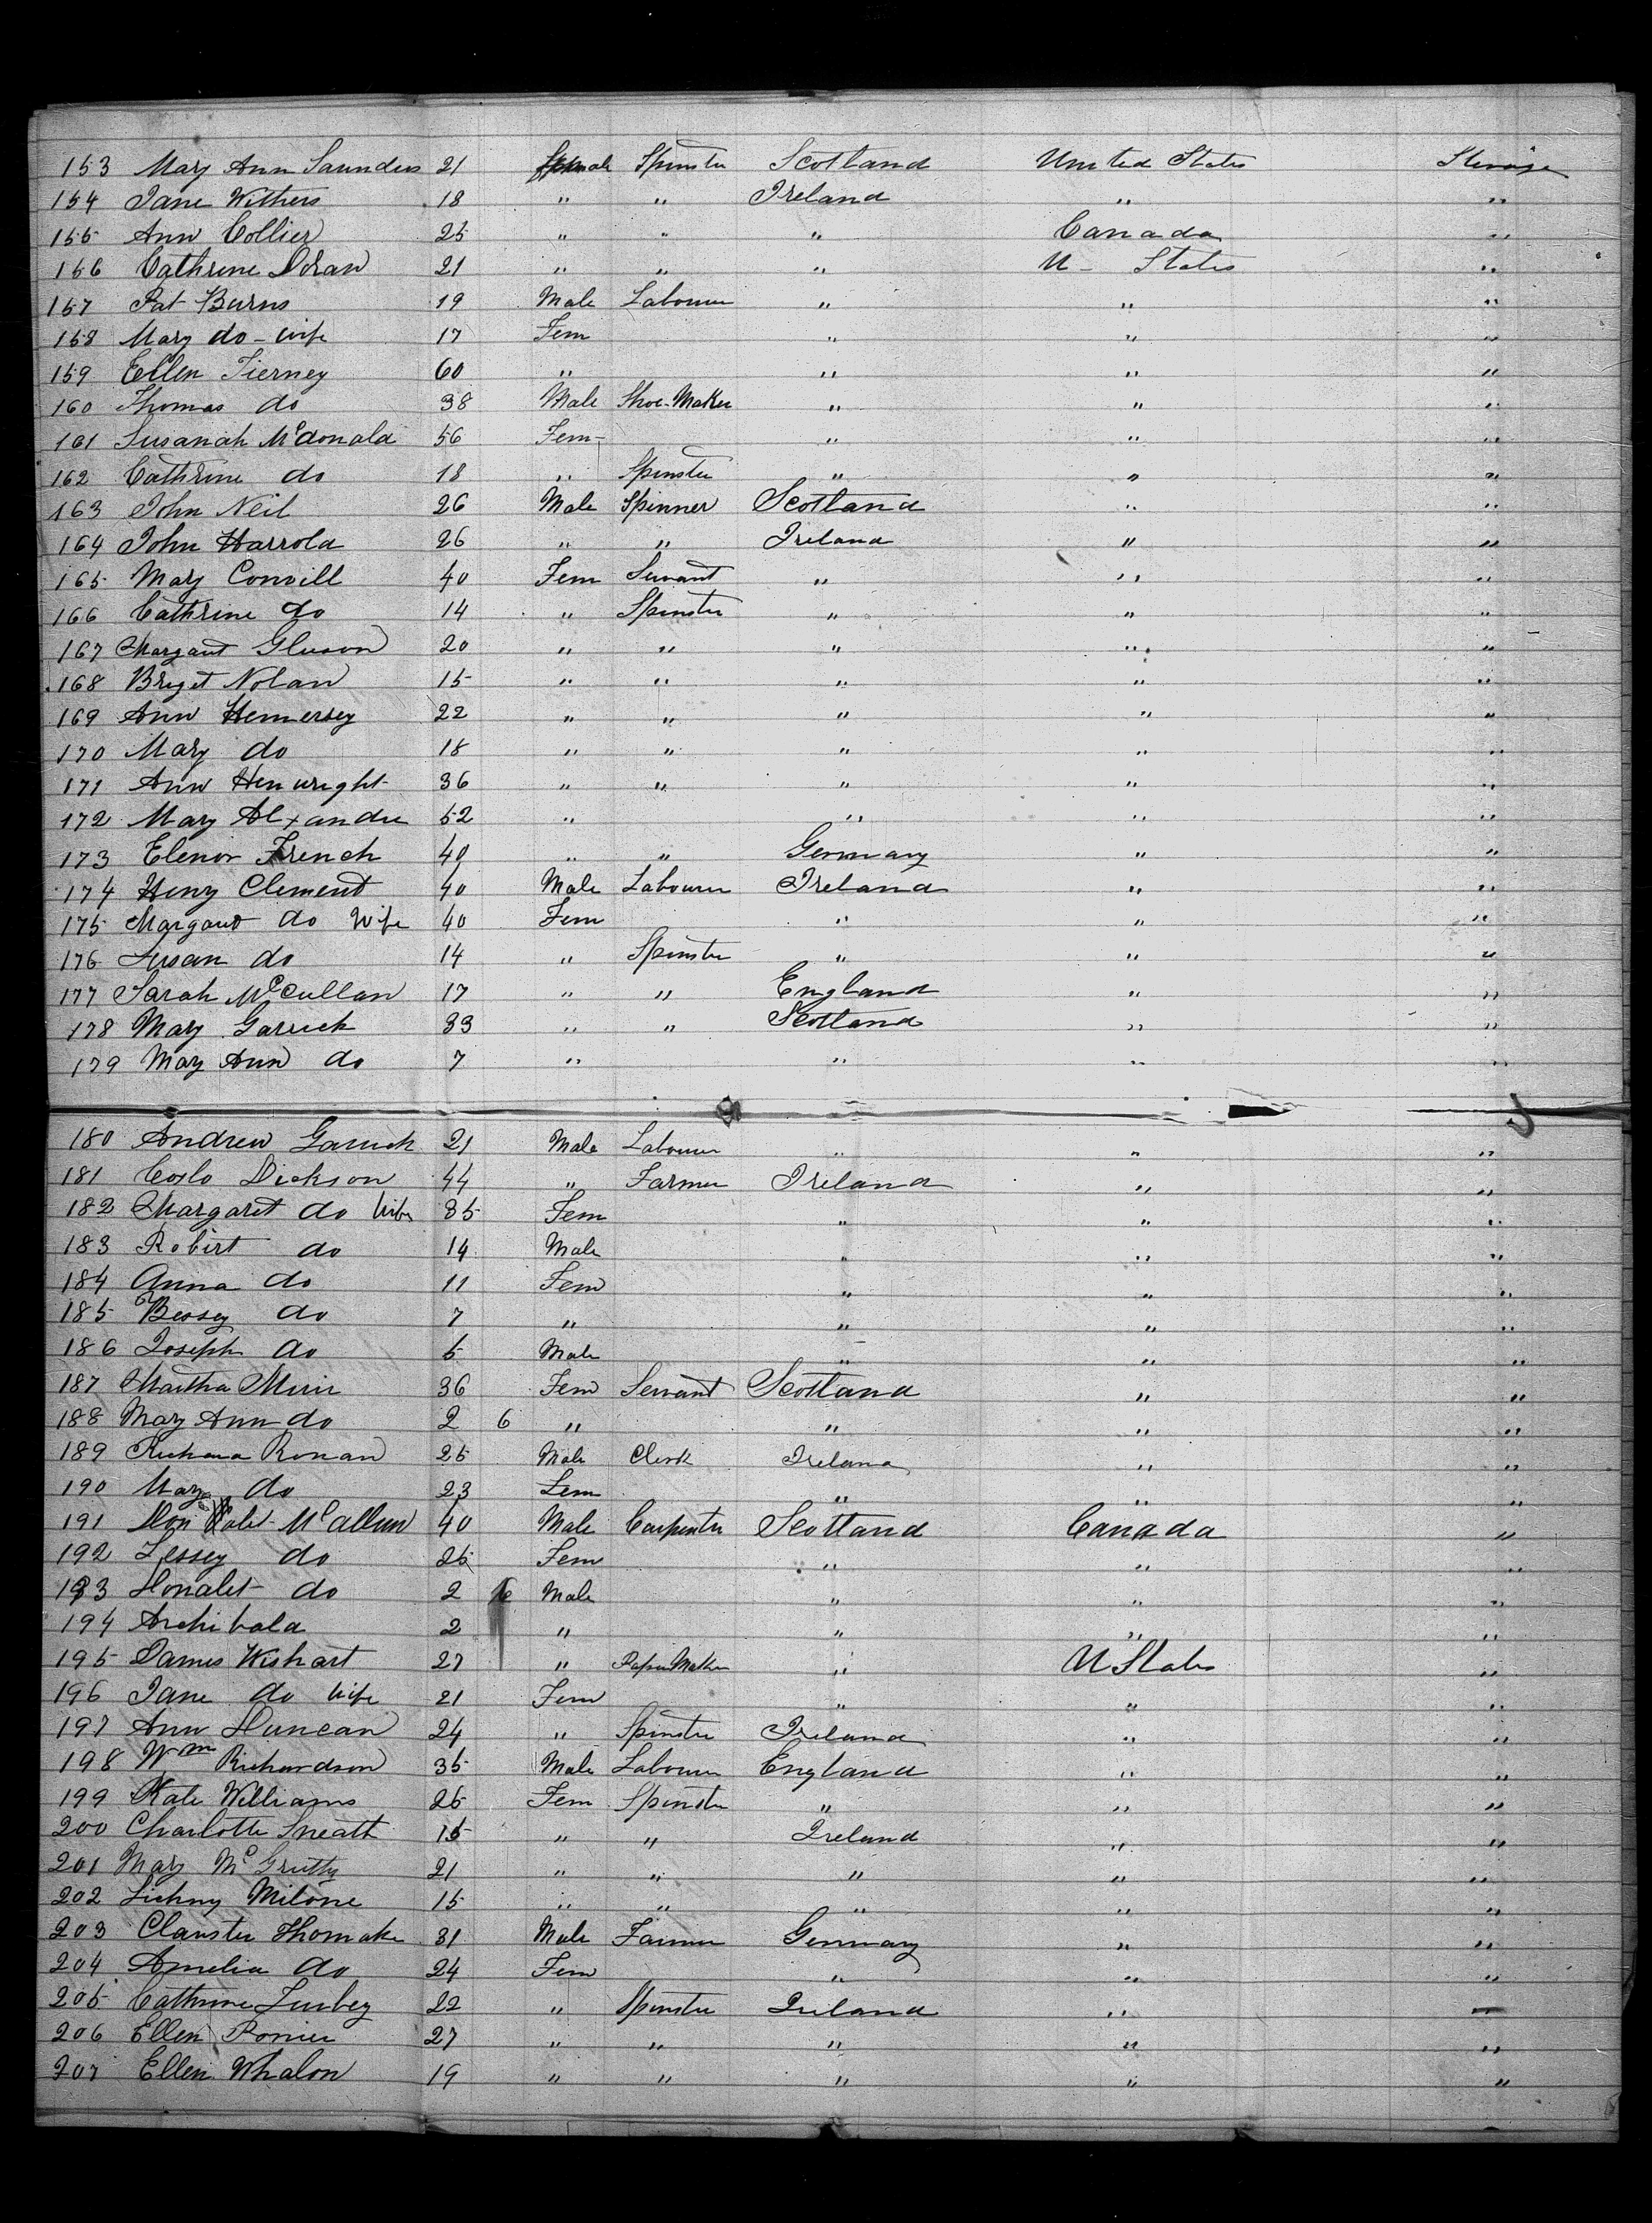 153 Mary Ann Saunders 21 Female Spinster Scotland United States Sterage
154 Jane Withers 18 " " Ireland " "
155 Ann Collier 25 " " " Canada "
156 Cathrine Doran 21 " " " U - States "
157 Pat Burns 19 Male Labourer " " "
158 Mary do - wife 17 Fem " " "
159 Ellen Tierney 60 " " " "
160 Thomas do 38 Male Shoe-Maker " " "
161 Susanah McDonald 56 Fem- " " "
162 Cathrine do 18 " Spinster " " "
163 John Neil 26 Male Spinner Scotland " "
164 John Harrold 26 " " Ireland " "
165 Mary Convill 40 Fem Servant " " "
166 Cathrine do 14 " Spinster " " "
167 Margaret Gleeson 20 " " " " "
168 Briget Nolan 15 " " " " "
169 Ann Hemersey 22 " " " " "
170 Mary do 18 " " " " "
171 Ann Henwright 36 " " " " "
172 Mary Alxander 52 " " " "
173 Elenor French 40 " " Germany " "
174 Heny Clement 40 Male Labourer Ireland " "
175 Margaret do Wife 40 Fem " " "
176 Susan do 14 " Spinster " " "
177 Sarah McCullan 17 " " England " "
178 Mary Garrick 33 " " Scotland " "
179 Mary Ann do 7 " " " "
180 Andrew Garrick 21 Male Labourer " " "
181 Dickson 44 " Farmer Ireland " "
182 Margaret do Wife 35 Fem " " "
183 Robert do 14 Male " " "
184 Anna do 11 Fem " " "
185 Bessey do 7 " " " "
186 Joseph do 5 Male " " "
187 Martha Muir 36 Fem Servant Scotland " "
188 Mary Ann do 2 6 " " " "
189 Richard Ronan 25 Male Clerk Ireland " "
190 Mary do 23 Fem " " "
191 McAllum 40 Male Carpenter Scotland Canada "
192 Jessey do 25 Fem " " "
193 Donalet do 2 6 Male " " "
194 Archibald 2 " " " "
195 James Wishart 27 " Paper Maker " U States "
196 Jane do Wife 21 Fem " " "
197 Ann Duncan 24 " Spinster Ireland " "
198 Wm Richardson 35 Male Labourer England " "
199 Kate Williams 26 Fem Spinster " " "
200 Charlotte Sneath 15 " " Ireland " "
201 Mary 21 " " " " "
202 Milone 15 " " " " "
203 Thomake 31 Male Farmer Germany " "
204 Amelia do 24 Fem " " "
205 Cathrine 22 " Spinster Ireland " "
206 Ellen 27 " " " " "
207 Ellen Whalon 19 " " " " "